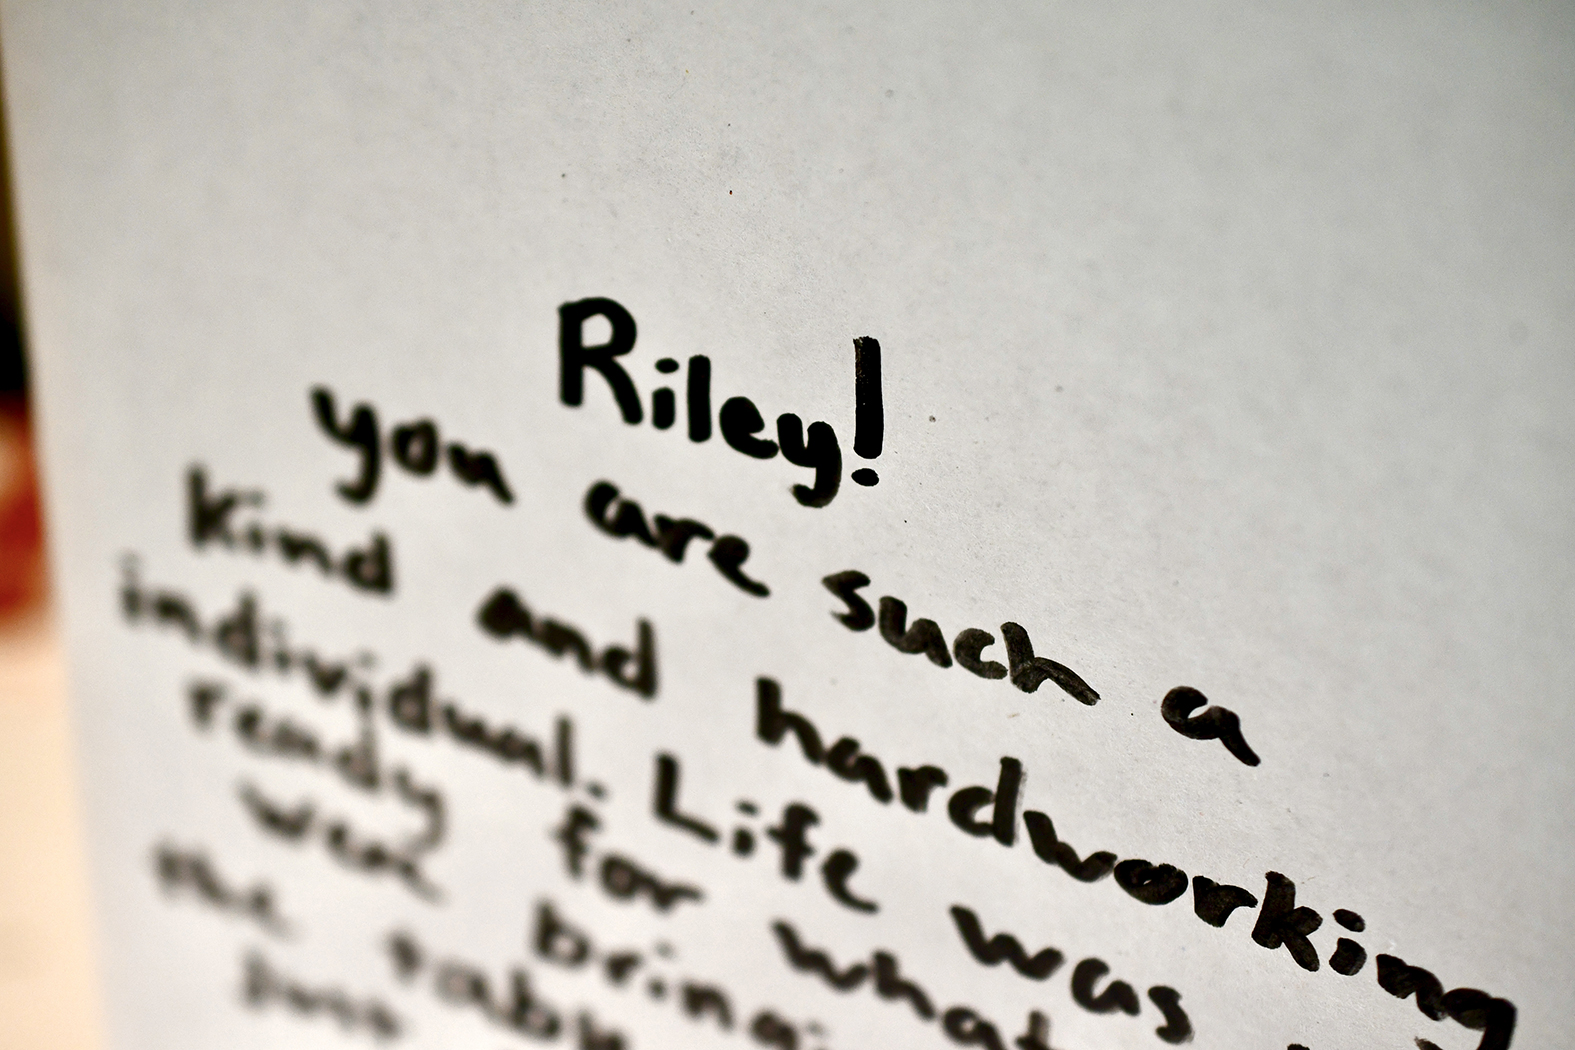 Riley!
you are such a
Kind and hardworking
individual. Life was
ready for what
were bringi
the table